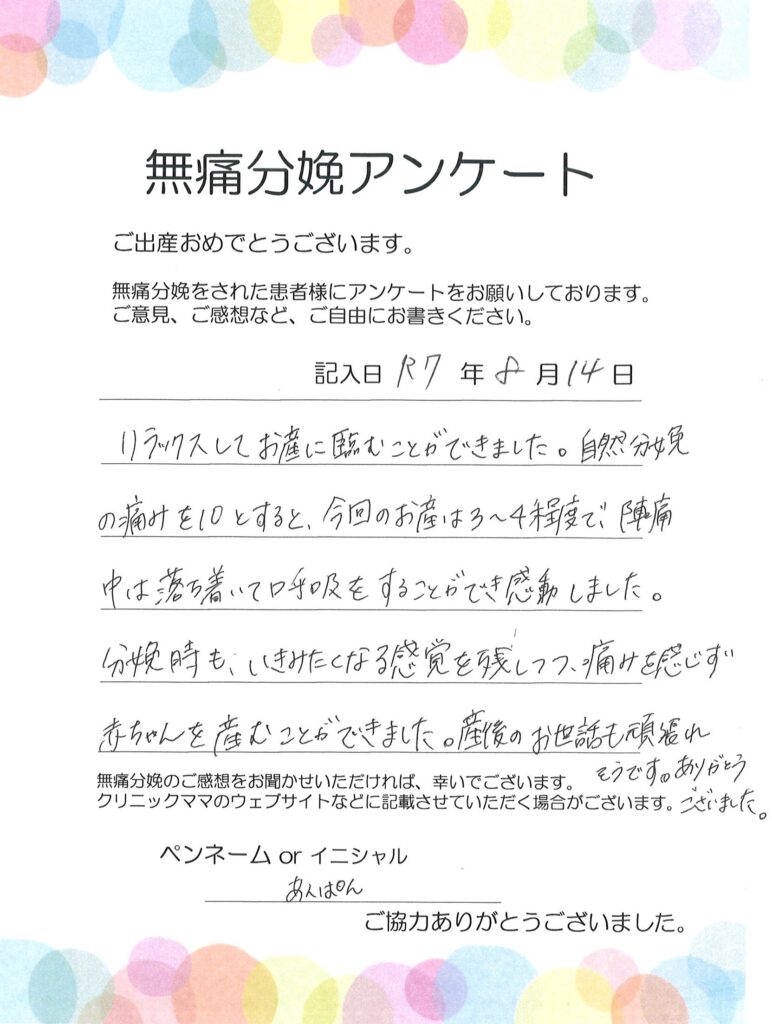 無痛分娩アンケート
ご出産おめでとうございます。
無痛分娩をされた患者様にアンケートをお願いしております。
ご意見、ご感想など、ご自由にお書きください。
記入日 R7 年 8 月 14 日
リラックスしてお産に臨むことができました。自然分娩
の痛みを10とすると、今回のお産は3〜4程度で、陣痛
中は落ち着いて呼吸をすることができ感動しました。
分娩時も、いきみたくなる感覚を残しつつ、痛みを感じず
赤ちゃんを産むことができました。産後のお世話も頑張れ
そうです。ありがとう
ございました。
無痛分娩のご感想をお聞かせいただければ、幸いでございます。
クリニックママのウェブサイトなどに記載させていただく場合がございます。
ペンネーム or イニシャル
あんぱん
ご協力ありがとうございました。